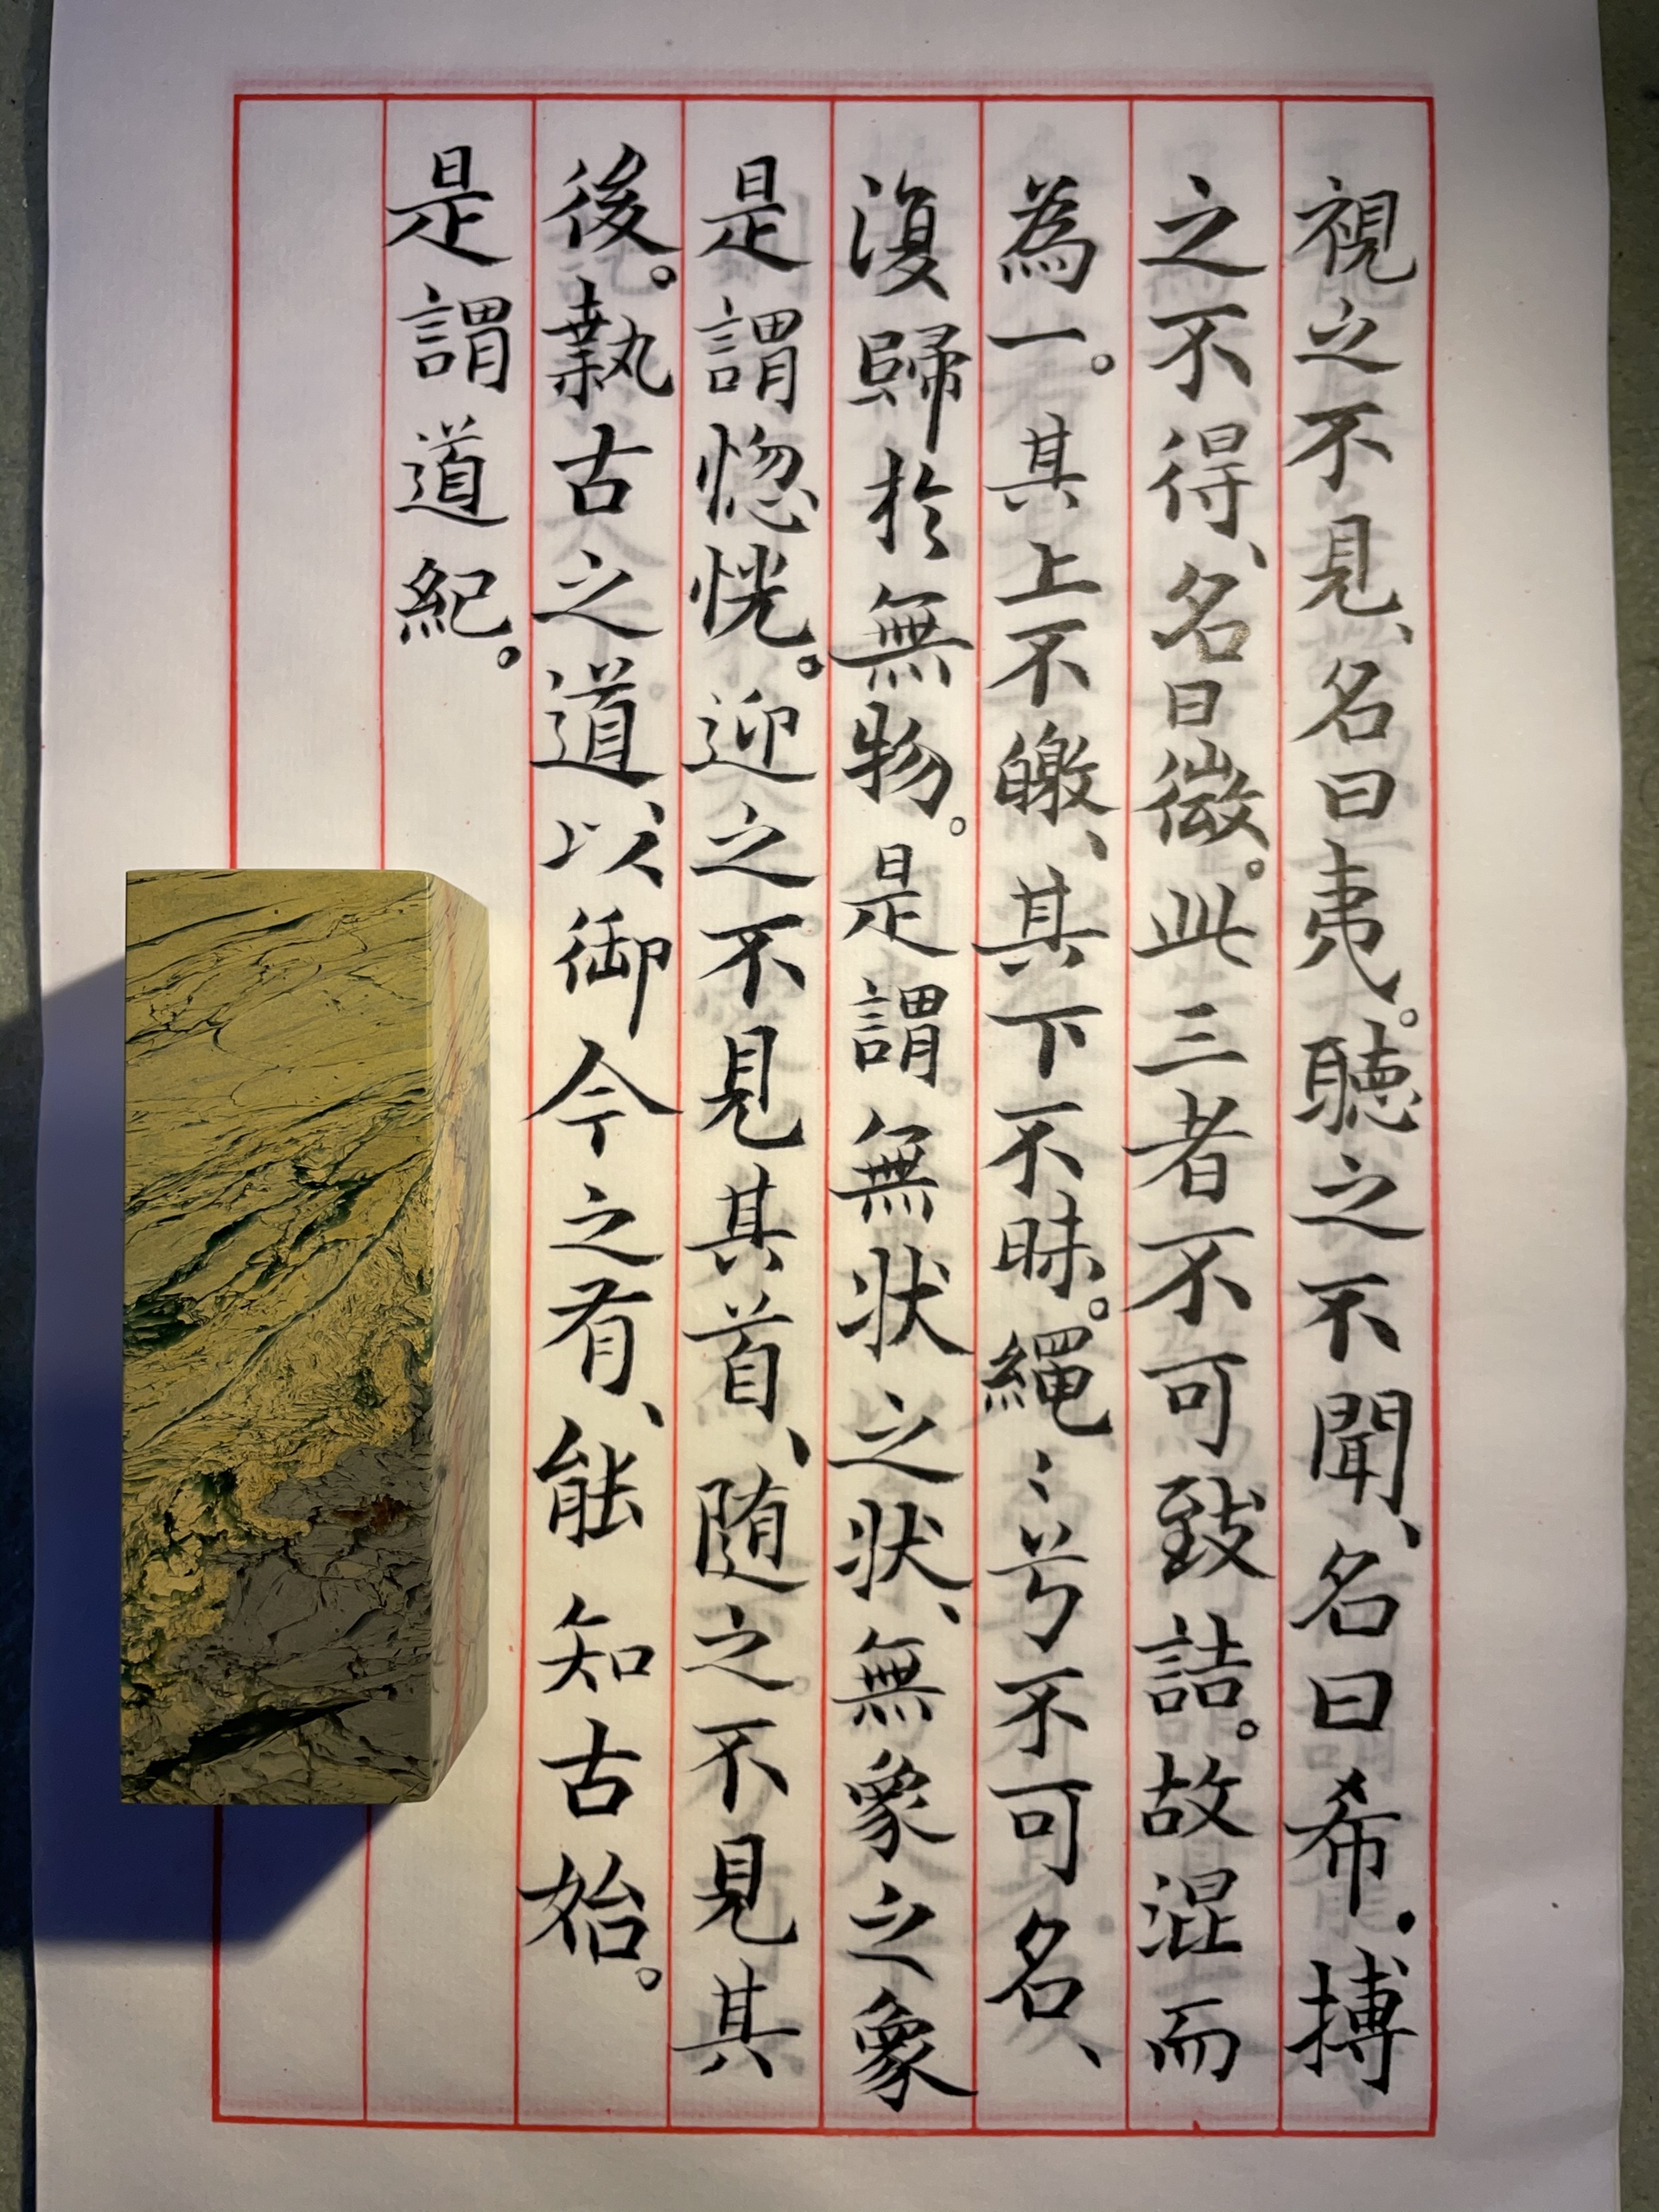 視之不見、名曰夷。聽之不聞、名曰希。搏
之不得、名曰微。此三者不可致詰。故混而
為一。其上不皦、其下不昧。繩〻兮不可名、
復歸於無物。是謂無狀之狀、無象之象
是謂惚恍。迎之不見其首、随之不見其
後。執古之道、以御今之有、能知古始。
是謂道紀。